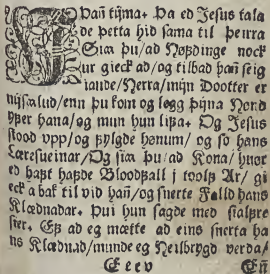 Þañ tijma. Þa ed Jesus tala
de þetta hid sama til þeirra
Sia þu/ ad Hoffdinge nock
ur gieck ad/ og tilbad hañ seig
iande/ Herra/ mijn Dootter er
nijsalud/ enn þu kom og legg þijna Hond
yfer hana/ og mun hun lifa. Og Jesus
stood vpp/ og fylgde honum/ og so hans
Læresueinar/ Og sia þu/ ad Kona/ huor
ed haft hafde Bloodfall j toolf Ar/ gi
eck a bak til vid hañ/ og snerte Falld hans
Klædnadar. Þui hun sagde med sialfre
sier. Ef ad eg mætte ad eins snerta ha
ns Klædnad/ munde eg Heilbrygd verda/
E e e v Eñ